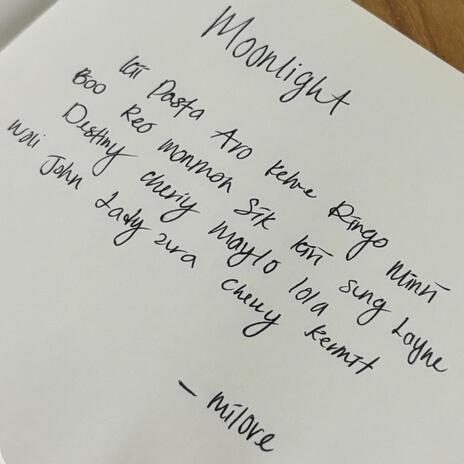 Moonlight
kai Pasta Aro kehve Ringo Minri
Boo Reo monmon Sik kiri sung Layne
Destiny cheriy maylo lola
wali John Lady zura cherry kermit
– milove